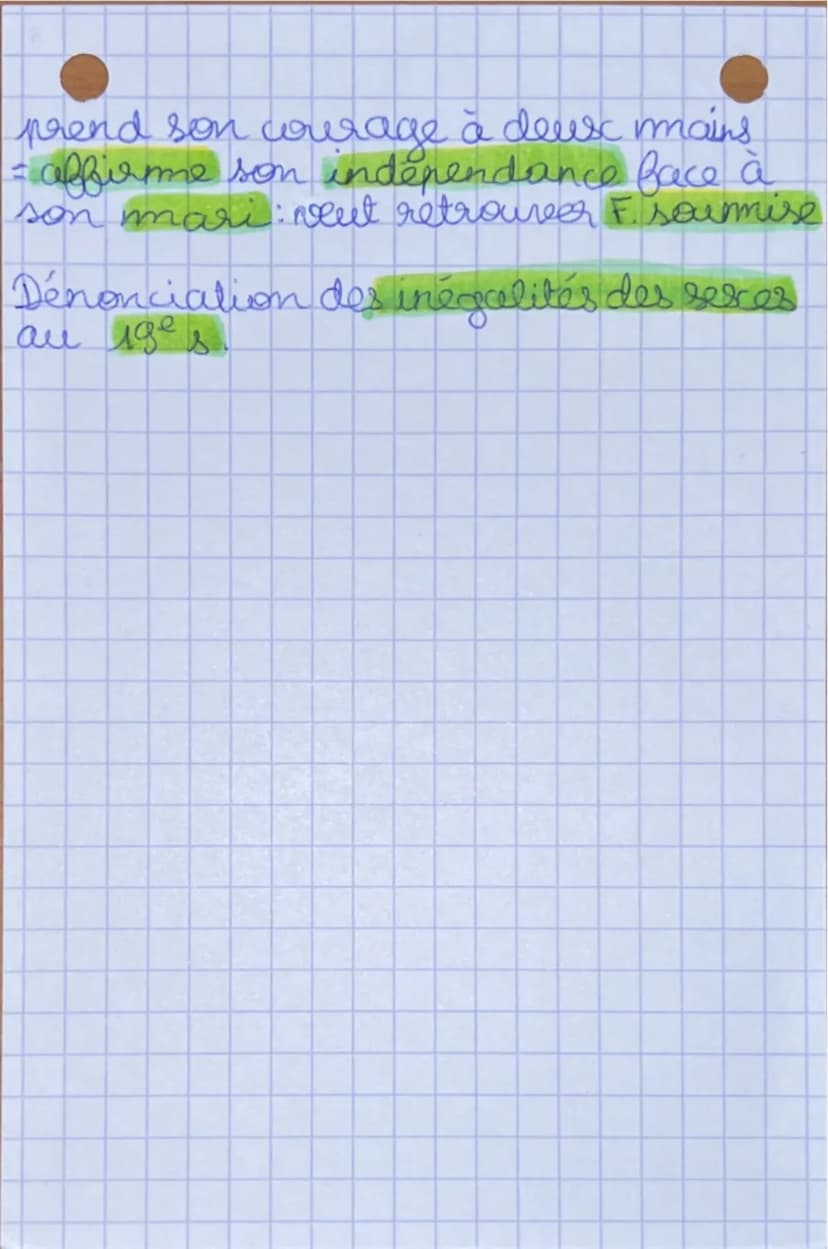 prend son courage à deux mains
= affirme son indépendance face à
son mari : veut retrouver F. soumise
Dénonciation des inégalités des sexes
au 19e s.